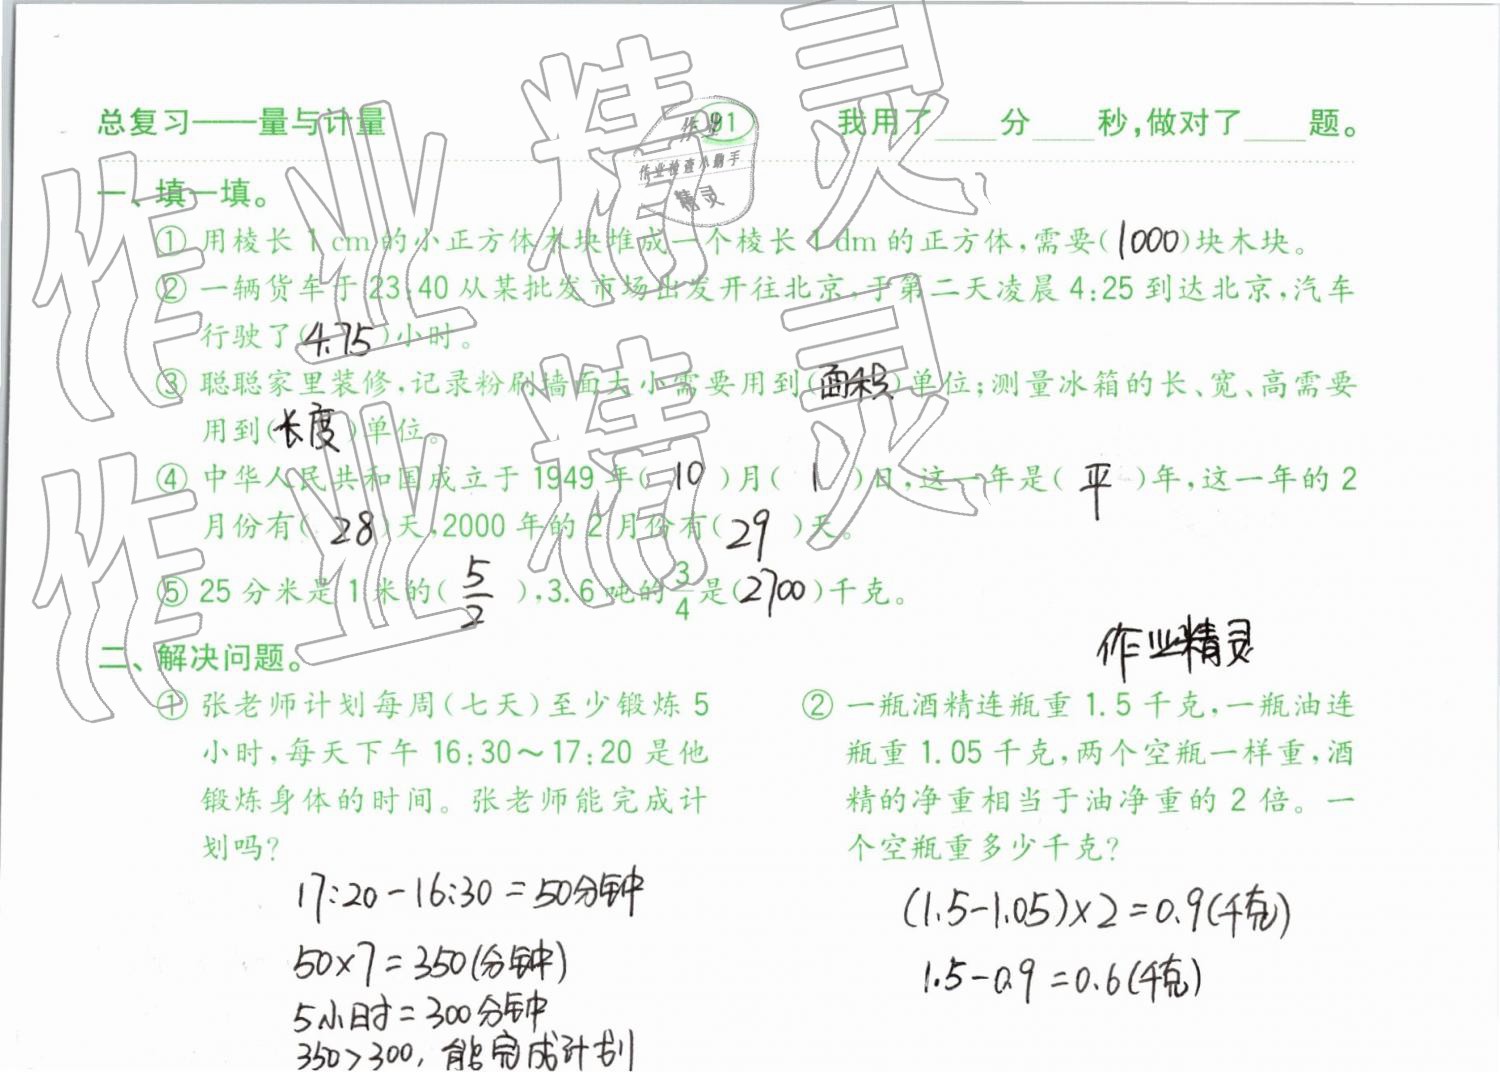 总复习——量与计量 91 我用了____分____秒,做对了____题。
一、填一填。
① 用棱长 1 cm 的小正方体木块堆成一个棱长 1 dm 的正方体,需要(1000)块木块。
② 一辆货车于 23:40 从某批发市场出发开往北京,于第二天凌晨 4:25 到达北京,汽车
行驶了(4.75)小时。
③ 聪聪家里装修,记录粉刷墙面大小需要用到(面积)单位;测量冰箱的长、宽、高需要
用到(长度)单位。
④ 中华人民共和国成立于 1949 年(10)月(1)日,这一年是(平)年,这一年的 2
月份有(28)天,2000 年的 2 月份有(29)天。
⑤ 25 分米是 1 米的(5/2),3.6 吨的3/4是(2700)千克。
作业精灵
二、解决问题。
① 张老师计划每周(七天)至少锻炼 5
小时,每天下午 16:30～17:20 是他
锻炼身体的时间。张老师能完成计
划吗?
17:20-16:30=50分钟
50×7=350(分钟)
5小时=300分钟
350>300,能完成计划
② 一瓶酒精连瓶重 1.5 千克,一瓶油连
瓶重 1.05 千克,两个空瓶一样重,酒
精的净重相当于油净重的 2 倍。一
个空瓶重多少千克?
(1.5-1.05)×2=0.9(千克)
1.5-0.9=0.6(千克)
作业
作业检查小助手
精灵
作业精灵
作业精灵